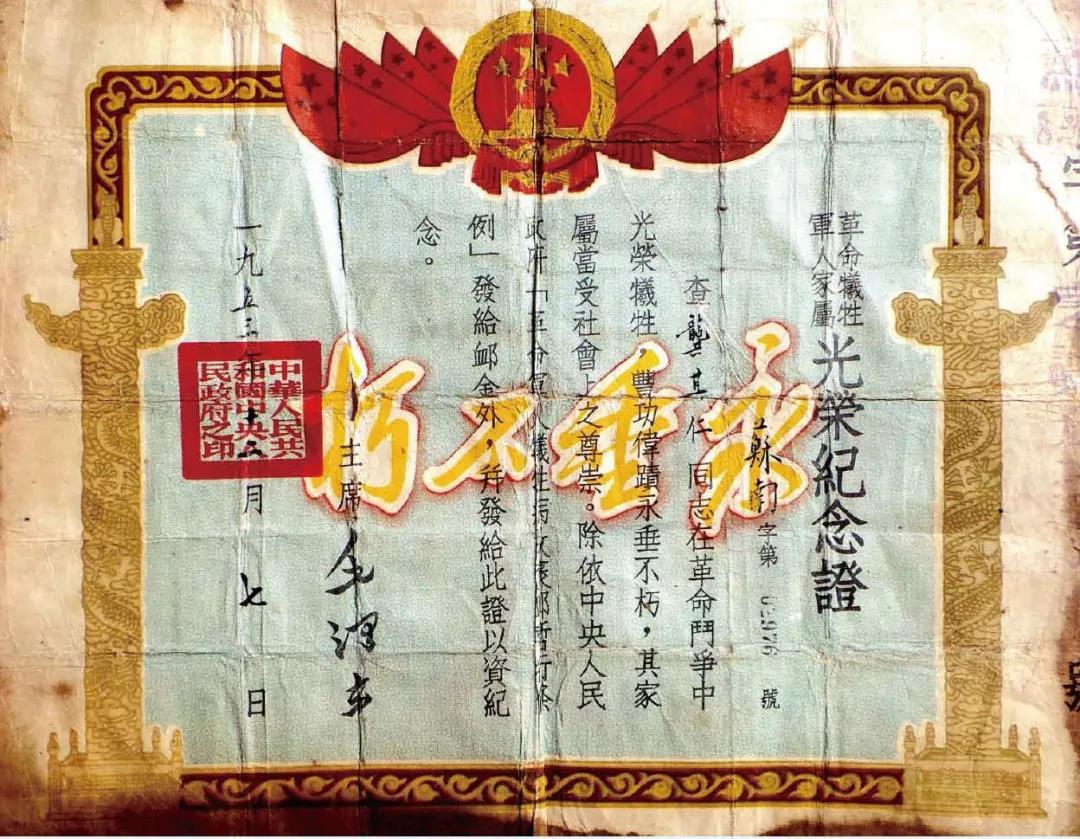 革命犧牲
軍人家屬
光榮紀念證
蘇南字第 號
查龔其仁同志在革命鬥爭中
光榮犧牲,豐功偉蹟永垂不朽,其家
屬當受社會上之尊崇。除依中央人民
政府「革命軍人犧牲病故褒卹暫行條
例」發給卹金外,并發給此證以資紀
念。
主席毛澤东
一九五三年十二月七日
永垂不朽
中華人民共
和國中央人
民政府之印
字第
號